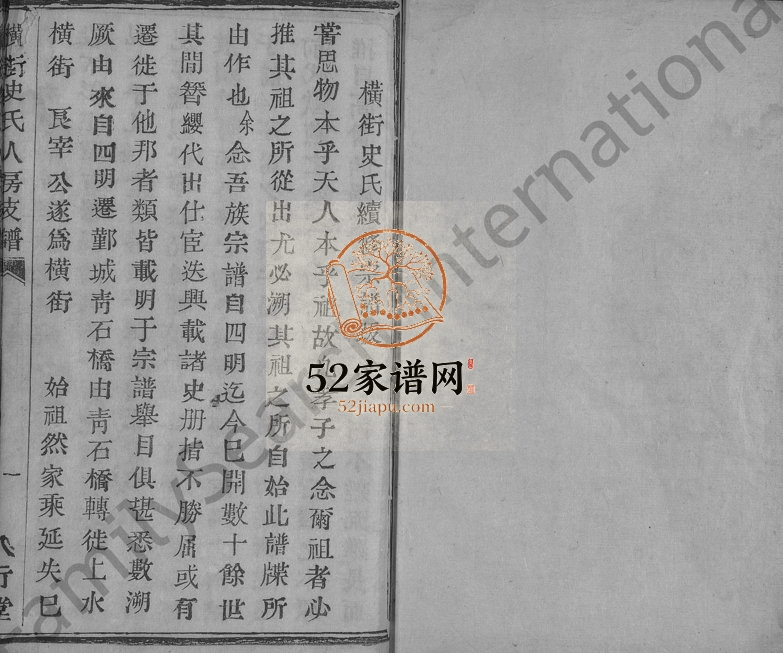 橫街史氏續修宗譜敘
嘗思物本乎天人本乎祖故孝子之念爾祖者必
推其祖之所從出尤必溯其祖之所自始此譜牒所
由作也余念吾族宗譜自四明迄今已開數十餘世
其間簪纓代出仕宦迭興載諸史册指不勝屈或有
遷徙于他邦者類皆載明于宗譜舉目俱堪悉數溯
厥由來自四明遷鄞城靑石橋由靑石橋轉徙上水
橫街 良宰公遂爲橫街 始祖然家乘延失已
橫街史氏人房支譜 一 八行堂
52家谱网
52jiapu.com
FamilySearch International